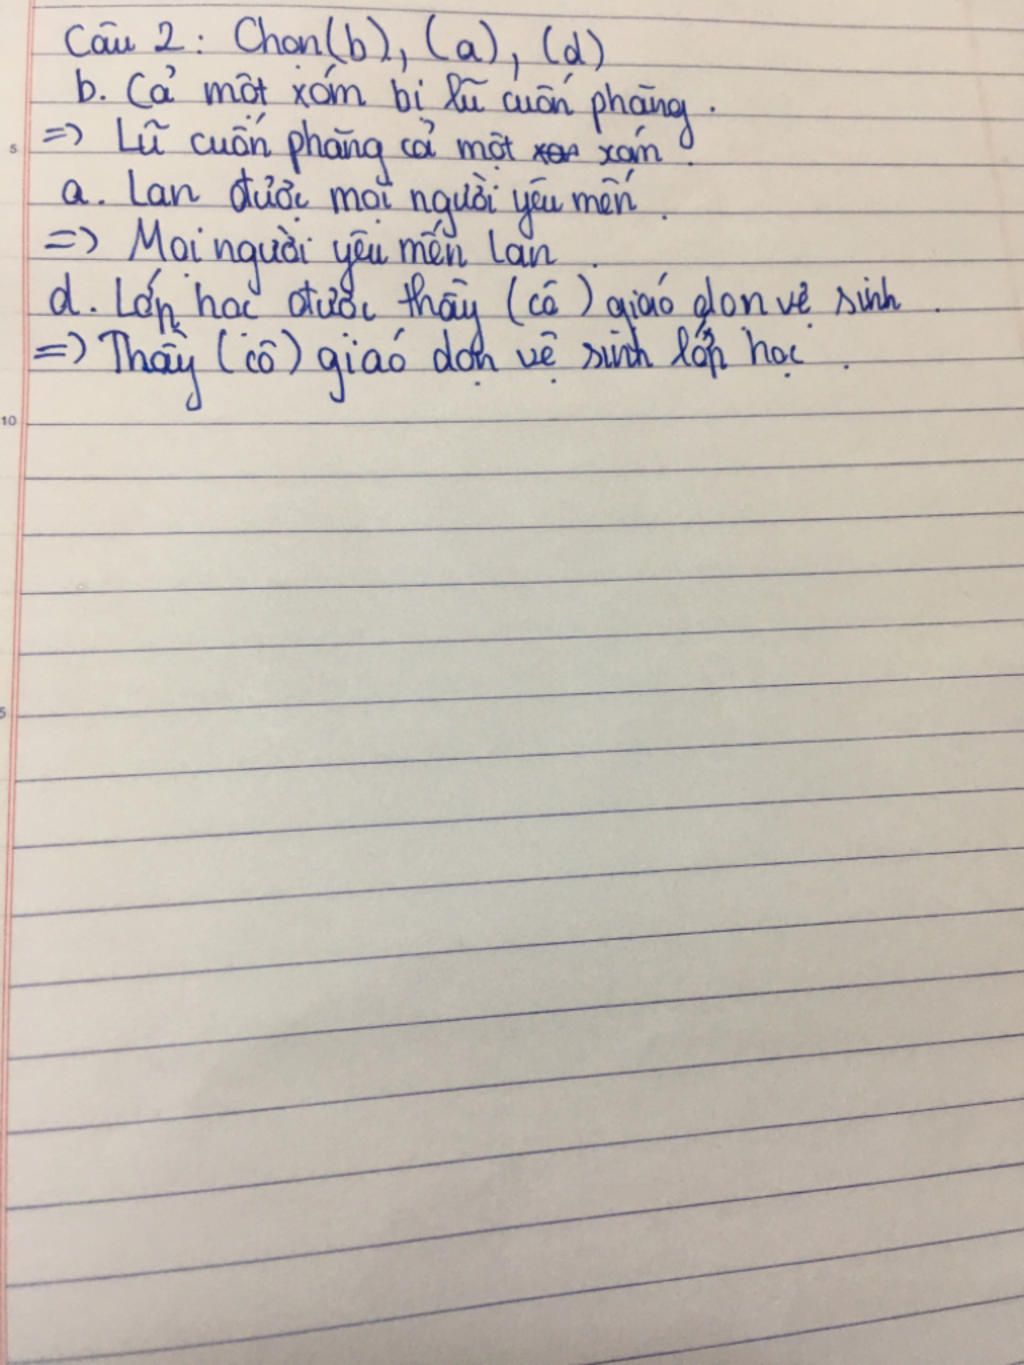 Câu 2: Chọn (b), (a), (d)
b. Cả một xóm bị lũ cuốn phăng.
=> Lũ cuốn phăng cả một xóm.
a. Lan được mọi người yêu mến.
=> Mọi người yêu mến Lan.
d. Lớp học được thầy (cô) giáo dọn vệ sinh.
=> Thầy (cô) giáo dọn vệ sinh lớp học.
5
10
5